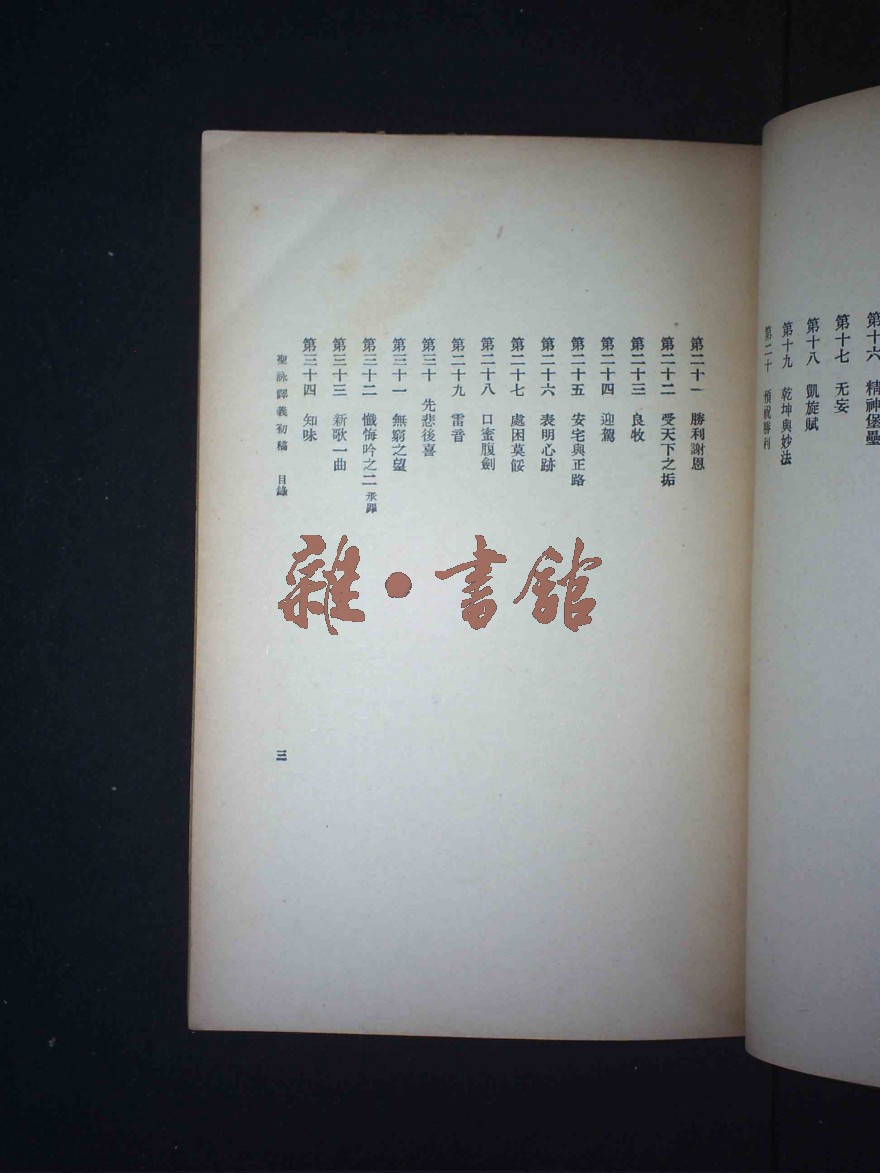 第十六　精神堡壘
第十七　无妄
第十八　凱旋賦
第十九　乾坤與妙法
第二十　預祝勝利
第二十一　勝利謝恩
第二十二　受天下之垢
第二十三　良牧
第二十四　迎駕
第二十五　安宅與正路
第二十六　表明心跡
第二十七　處困莫餒
第二十八　口蜜腹劍
第二十九　雷音
第三十　先悲後喜
第三十一　無窮之望
第三十二　懺悔吟之二
第三十三　新歌一曲
第三十四　知味
聖詠譯義初稿　目錄
三
雜・書館